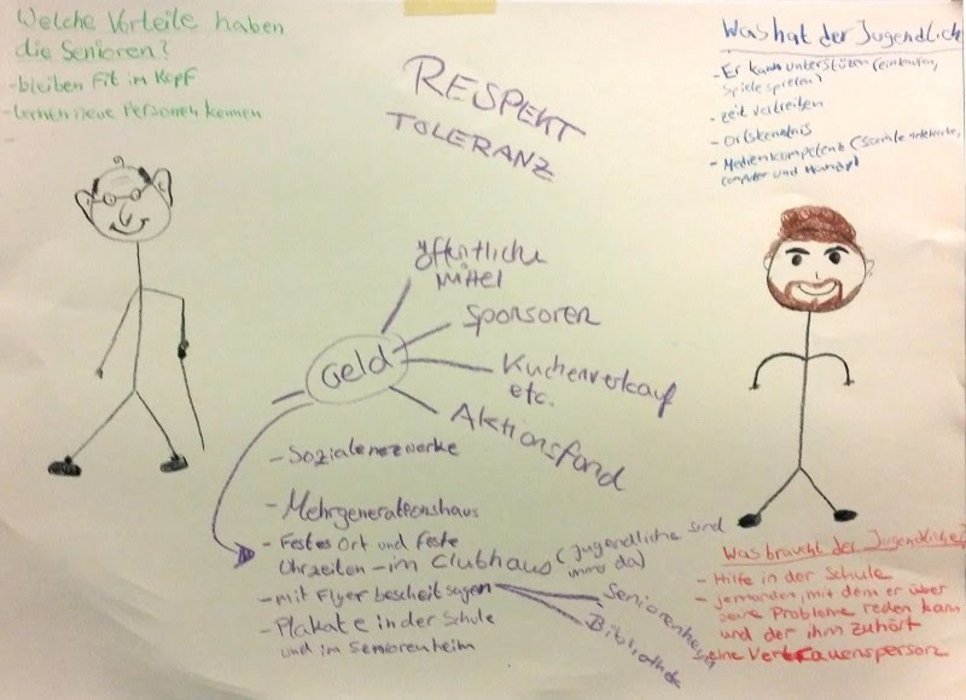 Welche Vorteile haben
die Senioren?
-bleiben Fit im Kopf
-lernen neue Personen kennen
RESPEKT
TOLERANZ
Was hat der Jugendlich
-Er kann unterstüzen (einkaufen,
Spiele spielen)
-zeit vertreiben
-Ortskendnis
-Medienkompetenz (Soziale netzwerke,
computer und Handy)
öffentliche
Mittel
Sponsoren
Geld
Kuchenverkauf
etc.
Aktionsfond
-Sozialenezwerke
-Mehrgenerationshaus
-Festes Ort und feste
Uhrzeiten - im Clubhaus (Jugendliche sind
immer da)
-mit Flyer bescheit sagen
Seniorenheim
Bibliothek
-Plakate in der Schule
und im Seniorenheim
Was braucht der Jugendliche?
-Hilfe in der Schule
-jemanden, mit dem er über
seine Probleme reden kann
und der ihm zuhört
-eine Vertrauensperson